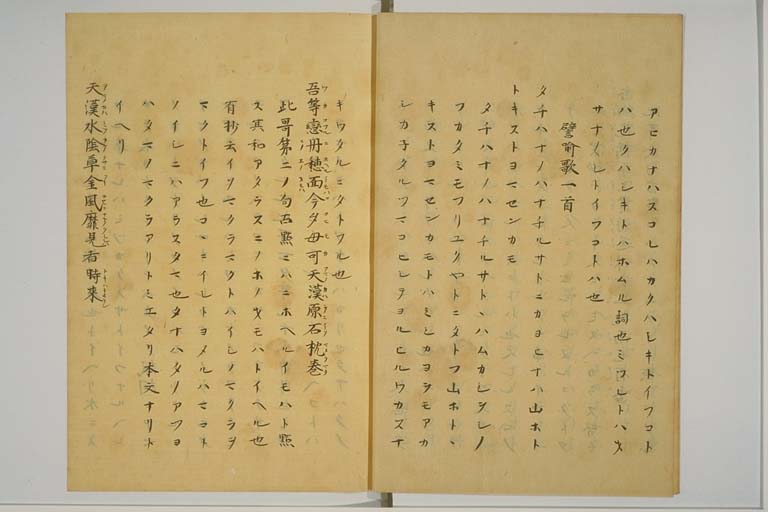 アヒカナハスコレハカクハシキトイフコト
ハ也クハシキトハホムル詞也ミワレトハ
サナクレトイフコトハ也
譬喩歌一首
タチハナノハナチルサトニカヨヒナハ山ホト
トキストヨマセンカモ
タチハナノハナチルサトハムカシシノ
フカタミモフリユクヤトニタトフ山ホトヽ
キストヨマセンカモトハミシカヨヲモアカ
シカ子タルツマコヒシテヨルヒルワカスナ
キワタルニタトフル也
吾等恋丹穂面今夕母可天漢原石枕巻
此哥第二ノ句古點ニハニホヘルイモハト點
ス其和アタラスニノホノオモハトイヘル也
有抄云イソマクラマクトハイシノマクラヲ
マクトイフ也コヽニイレトヨメルハマコト
ノイシニハアラスタマ也タナハタノアフヨ
ハタマノマクラアリトミエタリ本文ナリト
イヘリ
天漢水陰草金風靡見者時来